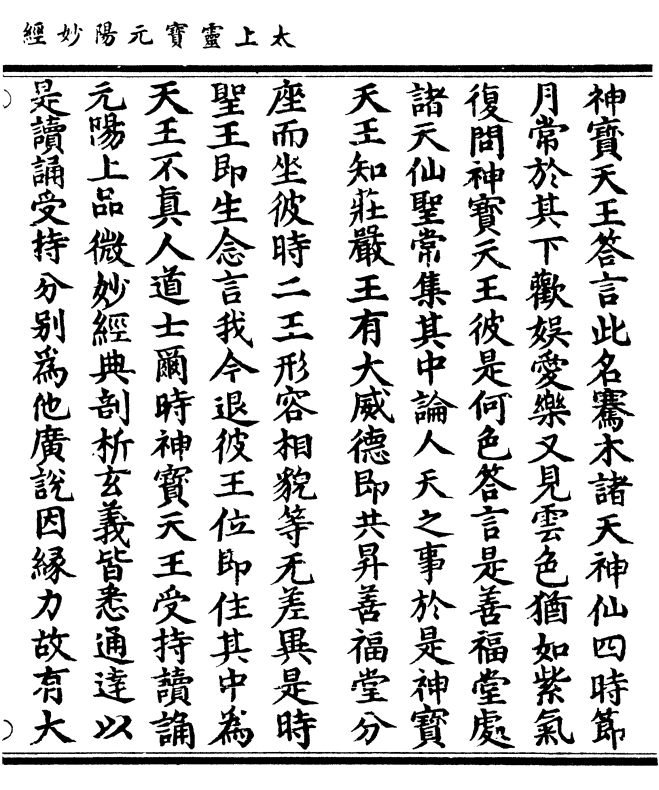 太上靈寶元陽妙經
神寶天王答言此名騫木諸天神仙四時節
月常於其下歡娛愛樂又見雲色猶如紫氣
復問神寶天王彼是何色答言是善福堂處
諸天仙聖常集其中論人天之事於是神寶
天王知莊嚴王有大威德即共昇善福堂分
座而坐彼時二王形容相貌等无差異是時
聖王即生念言我今退彼王位即住其中為
天王不真人道士爾時神寶天王受持讀誦
元陽上品微妙經典剖析玄義皆悉通達以
是讀誦受持分别為他廣說因緣力故有大